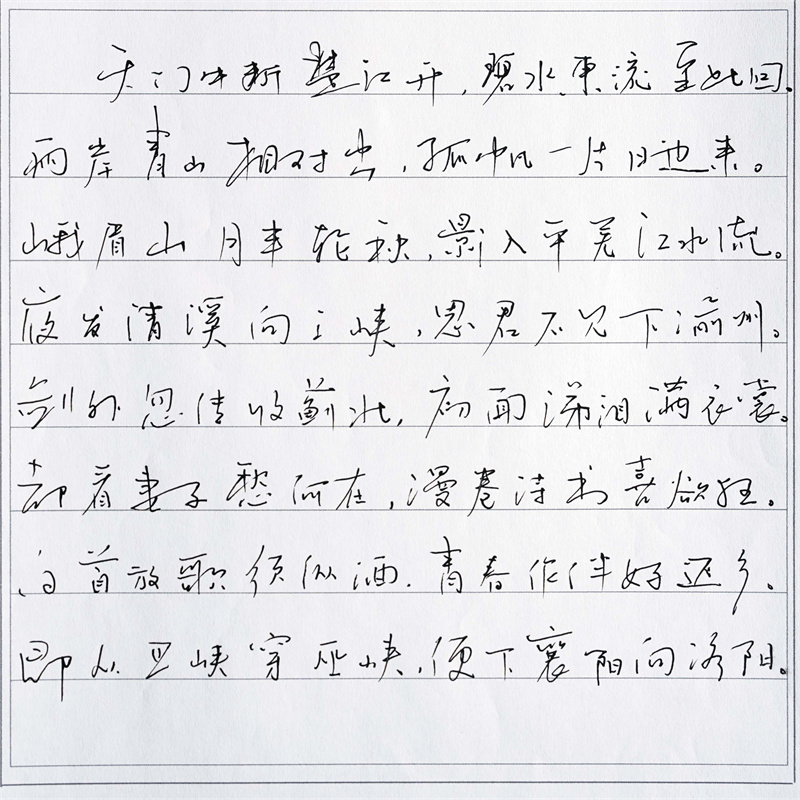 天门中断楚江开，碧水东流至此回。
两岸青山相对出，孤帆一片日边来。
峨眉山月半轮秋，影入平羌江水流。
夜发清溪向三峡，思君不见下渝州。
剑外忽传收蓟北，初闻涕泪满衣裳。
却看妻子愁何在，漫卷诗书喜欲狂。
白首放歌须纵酒，青春作伴好还乡。
即从巴峡穿巫峡，便下襄阳向洛阳。